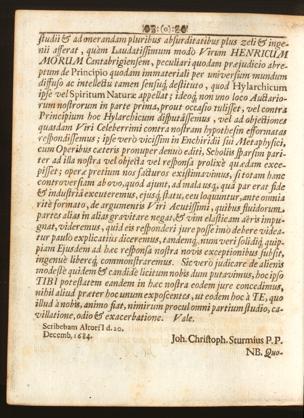 studii & adornandam pluribus absurditatibus plus zeli & inge-
nii afferat, quàm Laudatissimum modò Virum HENRICUM
MORUM Cantabrigiensem, peculiari quodam præjudicio abre-
ptum de Principio quodam immateriali per universum mundum
diffuso ac intellectu tamen sensuq́; destituto, quod Hylarchicum
ipse vel Spiritum Naturæ appellat; ideoq́; non uno loco Auctario-
rum nostrorum in parte prima, prout occasio tulisset, vel contra
Principium hoc Hylarchicum disputâssemus, vel ad objectiones
quasdam Viri Celeberrimi contra nostram hypothesin efformatas
respondissemus; ipse verò vicissim in Enchiridii sui Metaphysici,
cum Operibus cæteris pronuper denuò editi, Scholiis sparsim pari-
ter ad illa nostra vel objecta vel responsa prolixè quædam exce-
pisset; opera pretium nos facturos existimavimus, si totam hanc
controversiam ab ovo, quod ajunt, ad mala usq́; quâ par erat fide
& industriâ excuteremus, ejusq́; statu, ceu loquuntur, ante omnia
ritè formato, de argumentis Viri Acutissimi, quibus fluidorum
partes alias in alias gravitare negat, & vim elasticam aëris impu-
gnat, videremus, quid eis responderi jure posse imò debere videa-
tur paulò explicatius diceremus, tandemq́; num veri solidiq́; quip-
piam Ejusdem ad hæc responsa nostra novis exceptionibus subsit,
ingenuè libereq́; commonstraremus. Sic verò judicare de alienis
modestè quidem & candidè licitum nobis dum putavimus, hoc ipso
TIBI potestatem eandem in hæc nostra eodem jure concedimus,
nihil aliud præter hoc unum exposcentes, ut eodem hoc à TE, quo
illud à nobis, animo fiat, nimirum procul omni partium studio, ca-
villatione, odio & exacerbatione. Vale.
Scribebam Altorfi d. 20.
Decemb. 1684.
Joh. Christoph. Sturmius P. P.
NB. Quo-